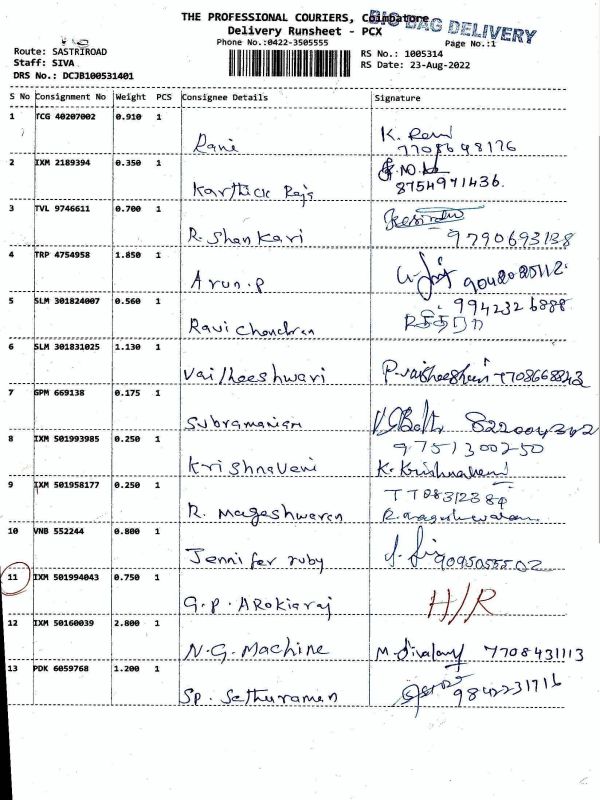 THE PROFESSIONAL COURIERS, Coimbatore
BIG BAG DELIVERY
Delivery Runsheet - PCX
Phone No.:0422-3505555
Page No.:1
Route: SASTRIROAD
RS No.: 1005314
Staff: SIVA
RS Date: 23-Aug-2022
DRS No.: DCJB100531401
S No Consignment No Weight PCS Consignee Details Signature
1 TCG 40207002 0.910 1
Rani K. Rani
7708648176
2 IXM 2189394 0.350 1
Karthick Raja 8754971436.
3 TVL 9746611 0.700 1
R. Shankari 9790693138
4 TRP 4754958 1.850 1
Arun.P
5 SLM 301824007 0.560 1
Ravi Chandran
6 SLM 301831025 1.130 1
Vaitheeshwari
7 GPM 669138 0.175 1
Subramaniam
8 IXM 501993985 0.250 1
9751300250
Krishnaveni K. Krishnaveni
9 IXM 501958177 0.250 1
R. Mageshwaran
10 VNB 552244 0.800 1
Jennifer ruby
11 IXM 501994043 0.750 1
G.P. Arokiaraj H/R
12 IXM 50160039 2.800 1
N.G. Machine 7708431113
13 PDK 6059768 1.200 1
Sp. Sethuraman 9842231716